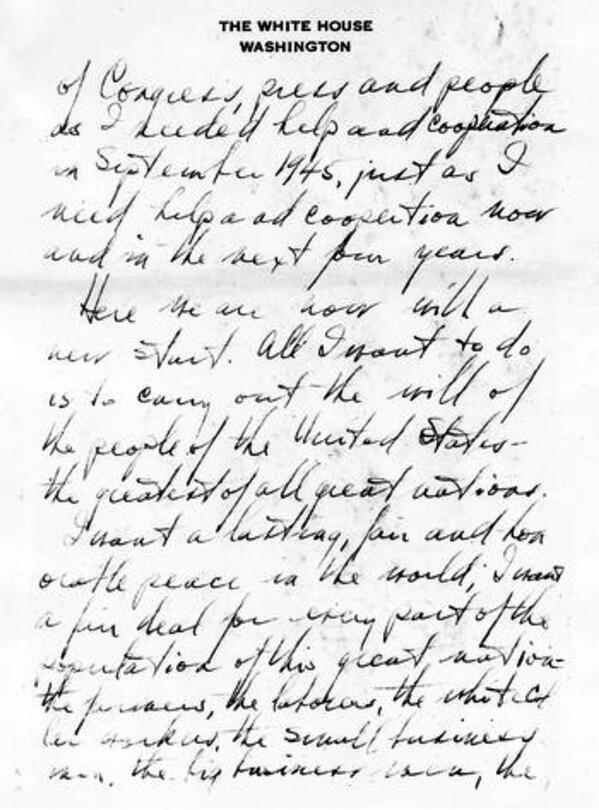 THE WHITE HOUSE
WASHINGTON
of Congress, press and people
as I needed help and cooperation
in September 1945, just as I
need help and coopertion now
and in the next four years.
Here we are now with a
new start. All I want to do
is to carry out the will of
the people of the United States-
the greatest of all great nations.
I want a lasting, fair and hon
orable peace in the world; I want
a fair deal for every part of the
population of this great nation-
the farmers, the laborers, the white col
lar workers, the small business
men, the big business men, the